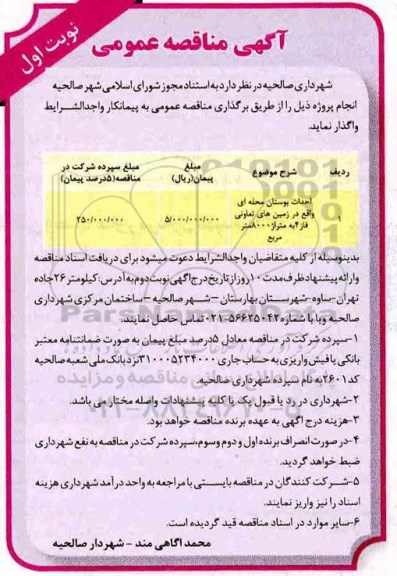 نوبت اول
آگهی مناقصه عمومی
شهرداری صالحیه در نظر دارد به استناد مجوز شورای اسلامی شهر صالحیه
انجام پروژه ذیل را از طریق برگذاری مناقصه عمومی به پیمانکار واجدالشرایط
واگذار نماید.
ردیف شرح موضوع مبلغ پیمان(ریال) مبلغ سپرده شرکت در مناقصه(۵درصد پیمان)
۱ احداث بوستان محله ای واقع در زمین های تعاونی فاز۴به متراژ۸۰۰۰متر مربع ۵/۰۰۰/۰۰۰/۰۰۰ ۲۵۰/۰۰۰/۰۰۰
بدینوسیله از کلیه متقاضیان واجدالشرایط دعوت میشود برای دریافت اسناد مناقصه
وارائه پیشنهاد ظرف مدت ۱۰روز از تاریخ درج آگهی نوبت دوم به آدرس: کیلومتر ۲۶جاده
تهران-ساوه-شهرستان بهارستان-شهر صالحیه-ساختمان مرکزی شهرداری
صالحیه و یا با شماره ۵۶۶۲۵۰۴۲-۰۲۱ تماس حاصل نمایند.
۱-سپرده شرکت در مناقصه معادل ۵درصد مبلغ پیمان به صورت ضمانتنامه معتبر
بانکی یا فیش واریزی به حساب جاری ۳۱۰۰۰۵۲۳۴۰۰۰ نزد بانک ملی شعبه صالحیه
کد۲۶۰۱ به نام سپرده شهرداری صالحیه.
۲-شهرداری در رد یا قبول یک یا کلیه پیشنهادات واصله مختار می باشد.
۳-هزینه درج آگهی به عهده برنده مناقصه خواهد بود.
۴-در صورت انصراف برنده اول و دوم وسوم،سپرده شرکت در مناقصه به نفع شهرداری
ضبط خواهد گردید.
۵-شرکت کنندگان در مناقصه بایستی با مراجعه به واحد درآمد شهرداری هزینه
اسناد را نیز واریز نمایند.
۶-سایر موارد در اسناد مناقصه قید گردیده است.
محمد اگاهی مند - شهردار صالحیه